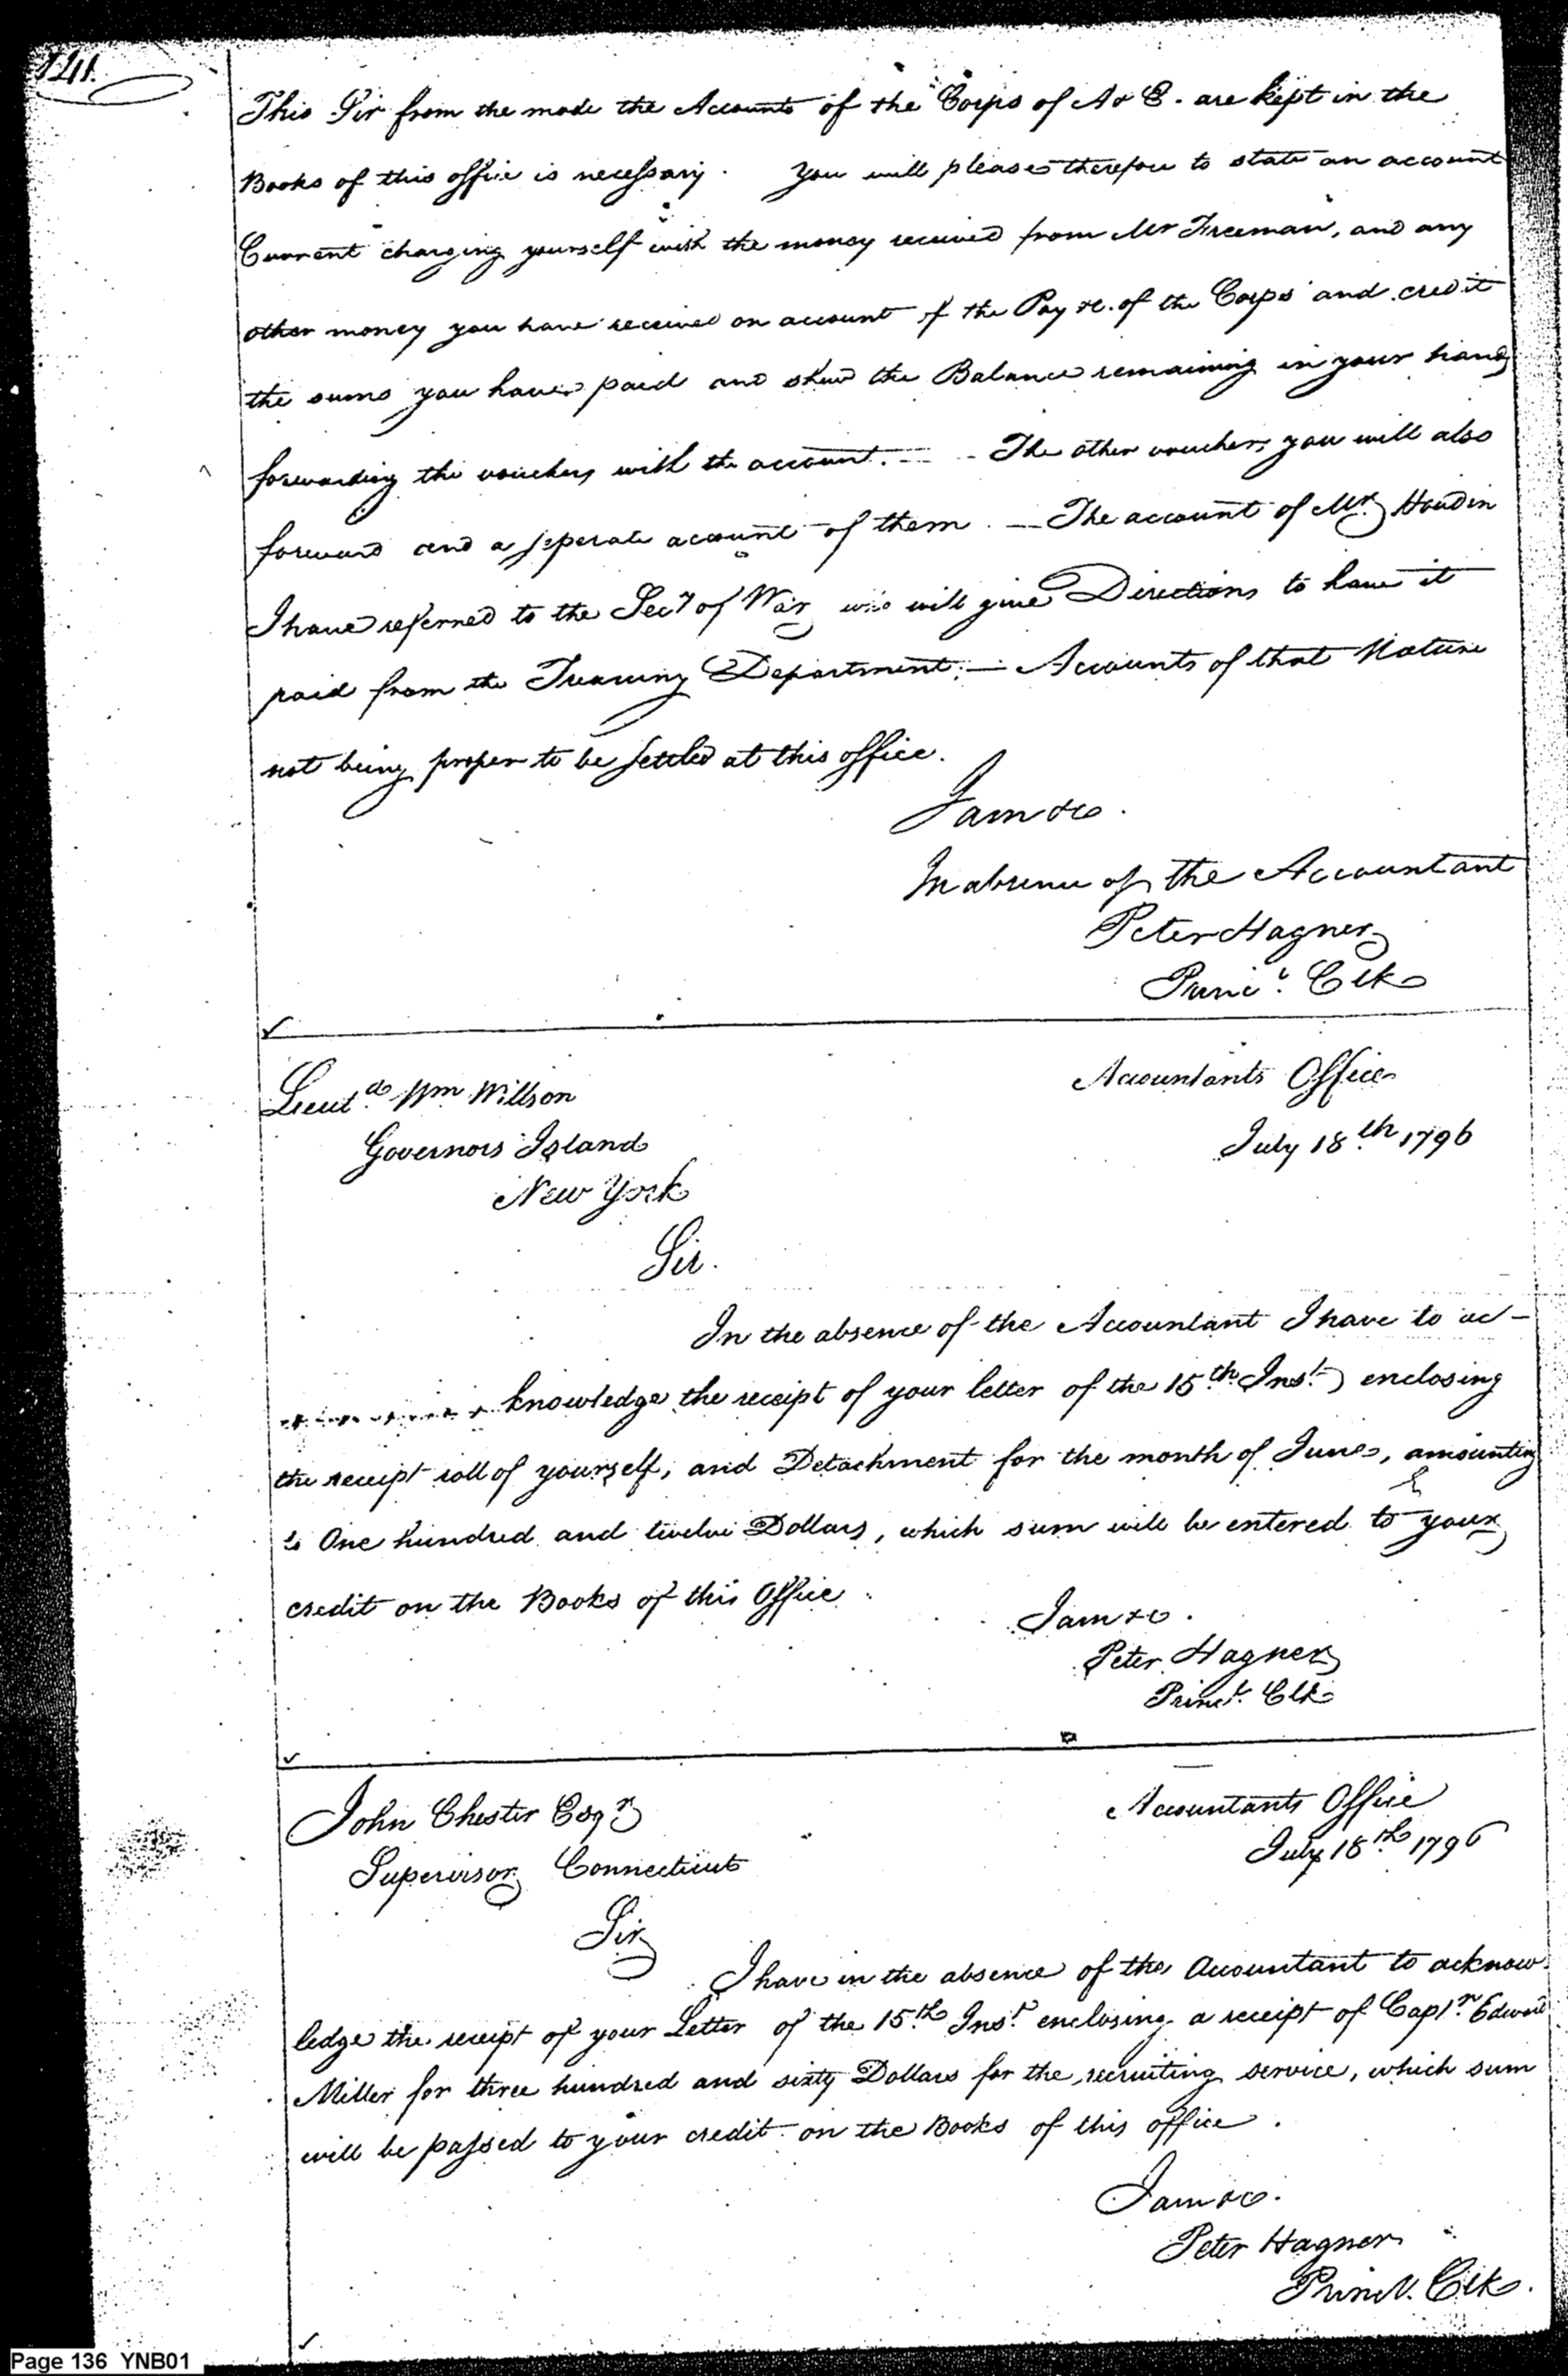 141.
This Sir from the mode the Accounts of the Corps of A & E. are kept in the
Books of this office is necessary. You will please therefore to state an account
Current charging yourself with the money received from Mr Freeman, and any
other money you have received on account of the Pay &c. of the Corps and credit
the sums you have paid and shew the Balance remaining in your hands
forwarding the vouchers with the account. — The other vouchers you will also
forward and a seperate account of them. — The account of Mr. Houdin
I have referred to the Secy of War who will give Directions to have it
paid from the Treasury Department; — Accounts of that Nature
not being proper to be settled at this office.
I am &c.
In absence of the Accountant
Peter Hagner
Princl. Clk
Lieut. Wm Willson
Accountants Office
Governors Island
July 18th 1796
New York
Sir.
In the absence of the Accountant I have to ac-
knowledge the receipt of your letter of the 15th Inst. enclosing
the receipt roll of yourself, and Detachment for the month of June, amounting
to One hundred and twelve Dollars, which sum will be entered to your
credit on the Books of this Office.
I am &c.
Peter Hagner
Princl. Clk
John Chester Esqr
Accountants Office
July 18th 1796
Supervisor Connecticut
Sir
I have in the absence of the Accountant to acknow-
ledge the receipt of your Letter of the 15th Inst enclosing a receipt of Captn Edward
Miller for three hundred and sixty Dollars for the recruiting service, which sum
will be passed to your credit on the Books of this office.
I am &c.
Peter Hagner
Princl. Clk.
Page 136 YNB01